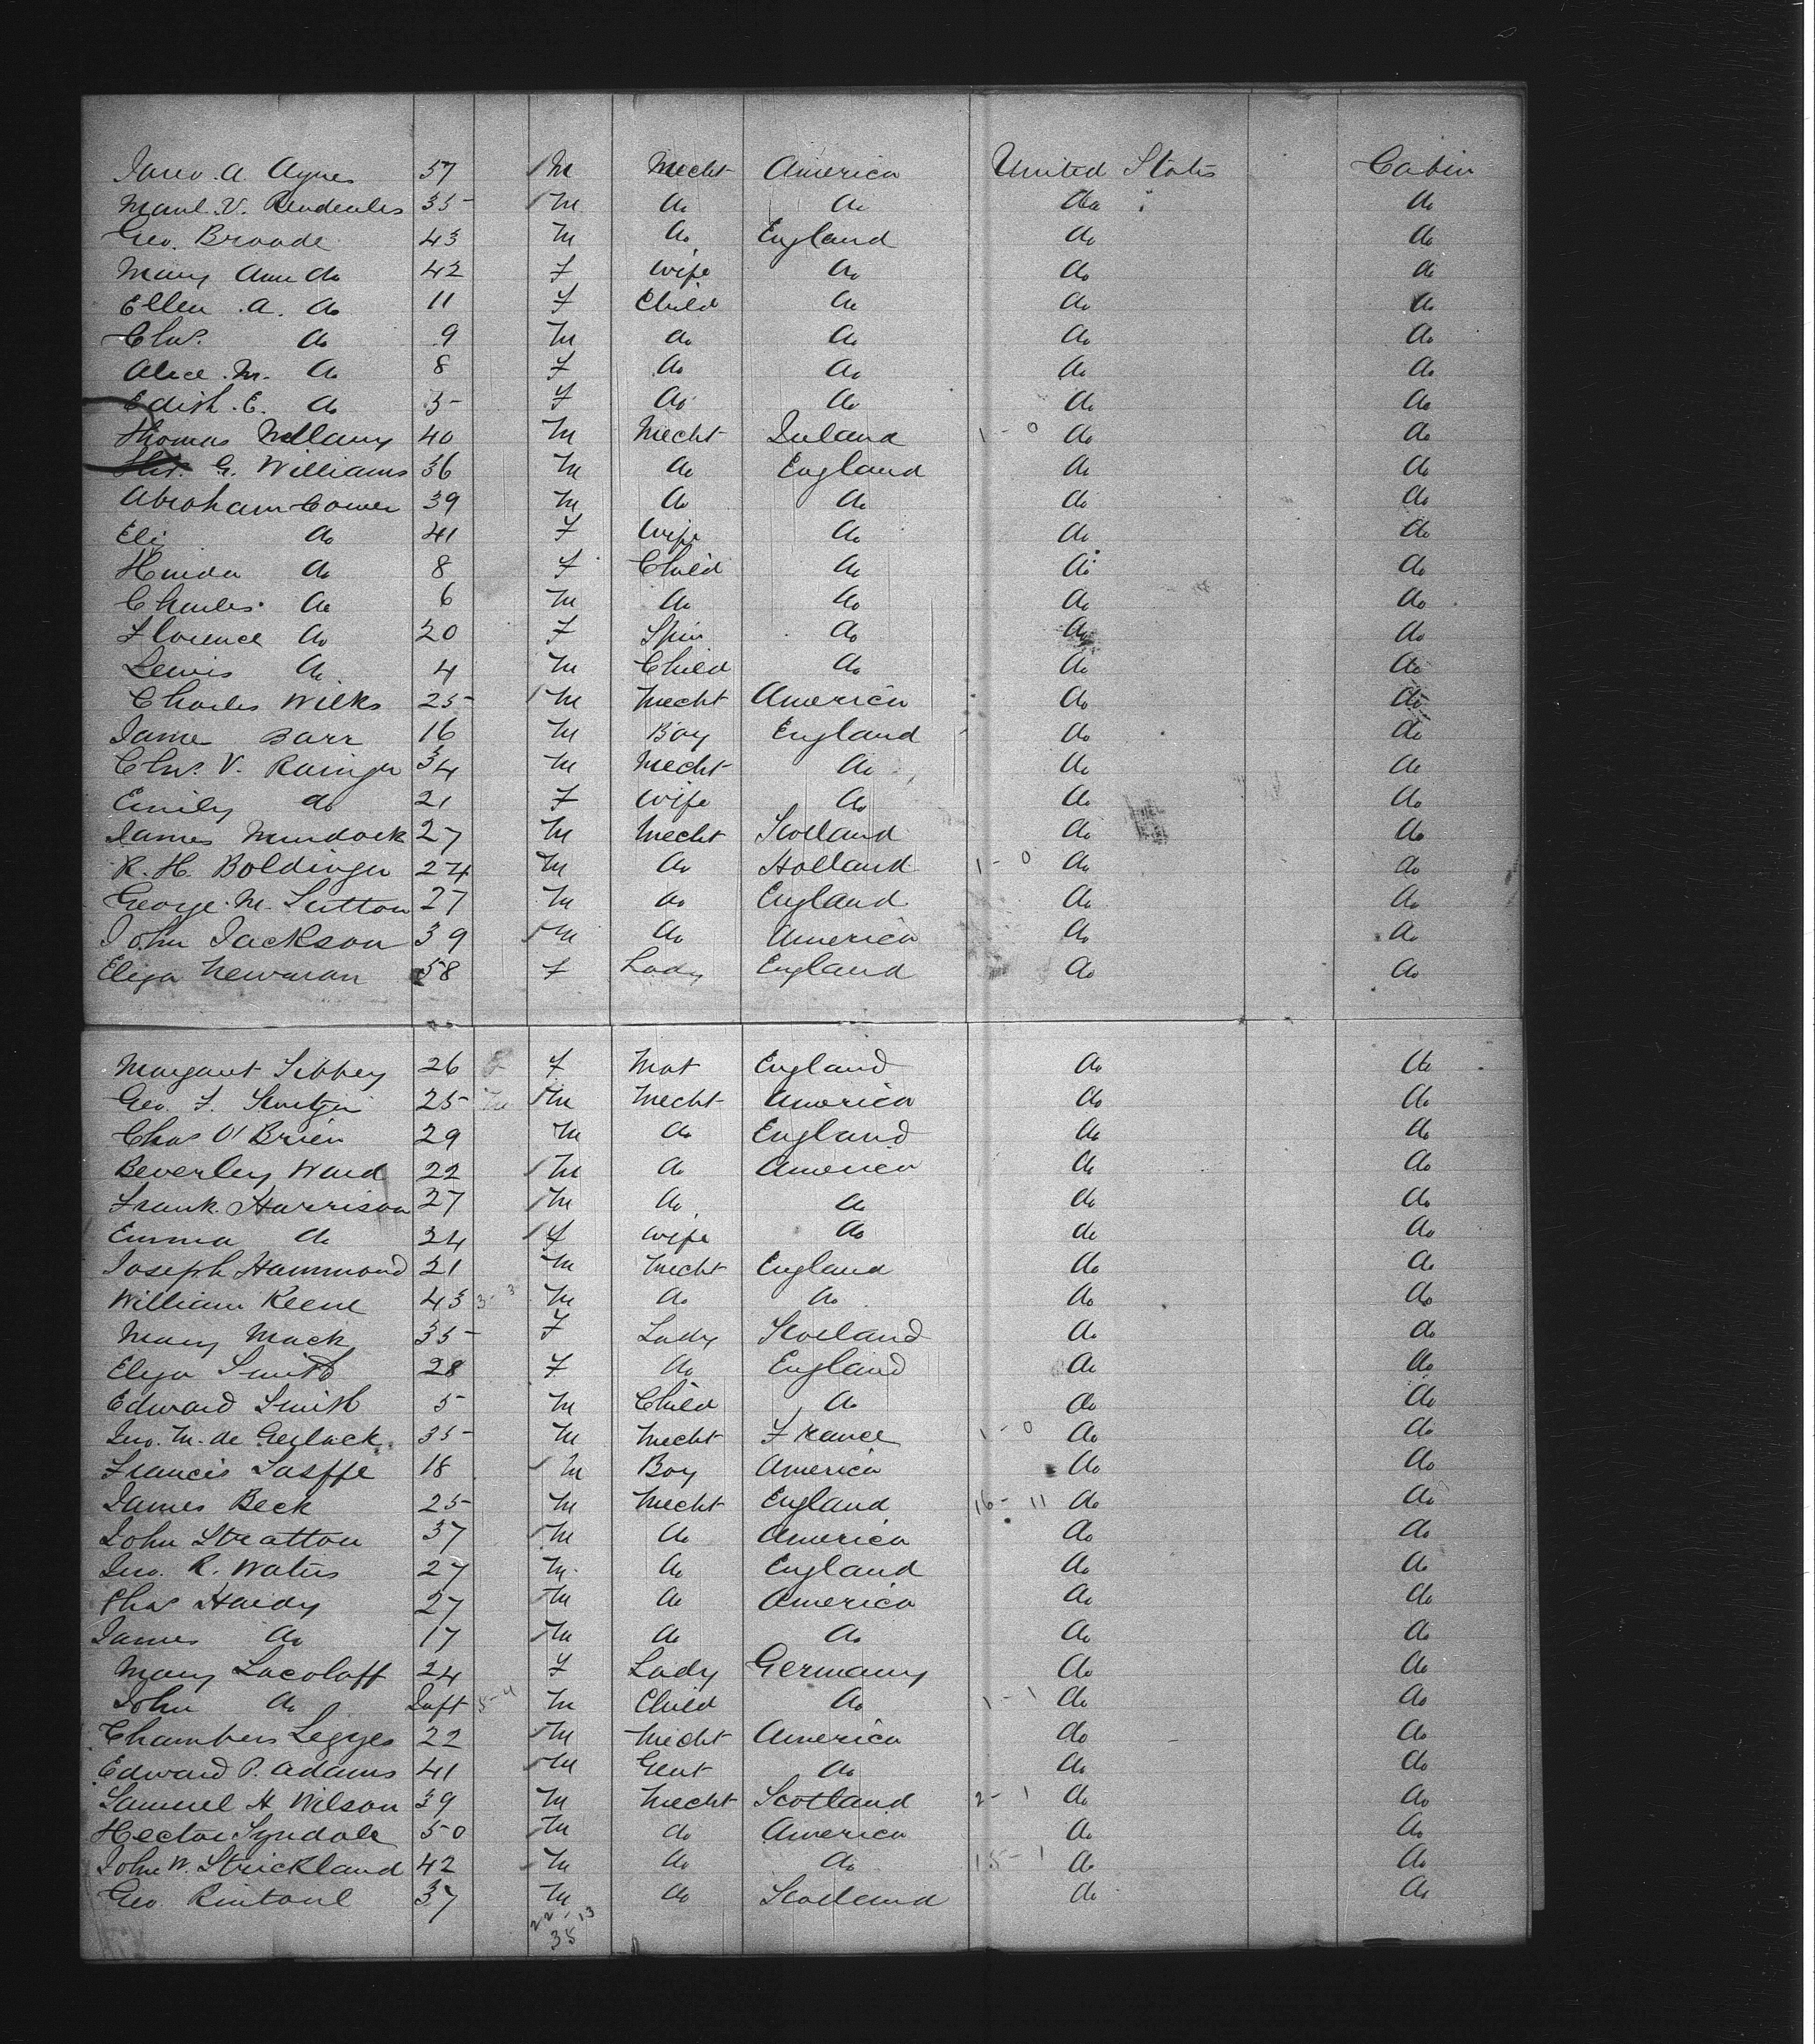 A. Aynes 57 M Mecht America United States Cabin
V. 35 M do do do do
Geo. Broode 43 M do England do do
Mary Ann do 42 F Wife do do do
Ellen A. do 11 F Child do do do
Chas. do 9 M do do do do
Alice M. do 8 F do do do do
Edith E. do 5 F do do do do
Thomas 40 M Mecht Ireland 1 - 0 do do
G. Williams 36 M do England do do
Abraham 39 M do do do do
do 41 F Wife do do do
do 8 F Child do do do
Charles do 6 M do do do do
Florence do 20 F Spin do do do
Lewis do 4 M Child do do do
Charles Wilks 25 M Mecht America do do
Jame Barr 16 M Boy England do do
Chas. V. Rainger 34 M Mecht do do do
Emily do 21 F Wife do do do
James Murdock 27 M Mecht Scotland do do
R. H. Boldinger 24 M do Holland 1 - 0 do do
George M. Sutton 27 M do England do do
John Jackson 39 M do America do do
Eliza Newman 58 F Lady England do do
Margaret Sibbey 26 F Mat England do do
Geo. F. 25 M Mecht America do do
Chas O'Brien 29 M do England do do
Beverley Ward 22 M do America do do
Frank Harrison 27 M do do do do
Emma do 24 F Wife do do do
Joseph Hammond 21 M Mecht England do do
William Keene 43 3 - 3 M do do do do
Mary Mack 35 F Lady Scotland do do
Eliza Smith 28 F do England do do
Edward Smith 5 M Child do do do
Jno. M. de Gerlack 35 M Mecht France 1 - 0 do do
Francis 18 M Boy America do do
James Beck 25 M Mecht England 16 - 11 do do
John Stratton 37 M do America do do
Jno. R. Waters 27 M do England do do
Chas Hardy 27 M do America do do
James do 17 M do do do do
Mary Lacolaff 24 F Lady Germany do do
John do Inft 5 - 4 M Child do 1 - 1 do do
Chambers Legges 22 M Mecht America do do
Edward P. Adams 41 M Gent do do do
Samuel H Wilson 39 M Mecht Scotland 2 - 1 do do
Hector Tyndale 50 M do America do do
John W. Strickland 42 M do do 15 - 1 do do
Geo. Rintoul 37 M do Scotland do do
22 - 13
35